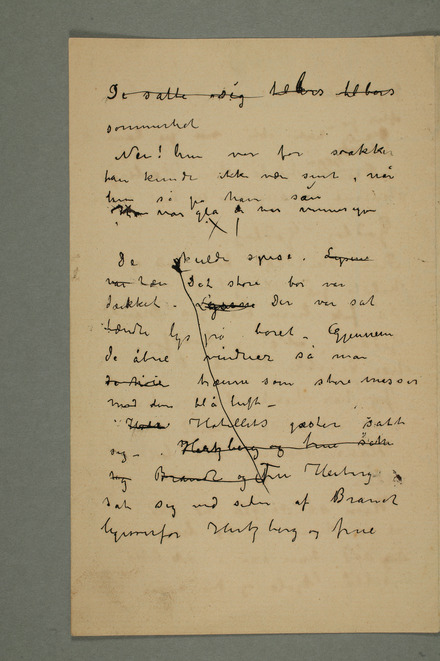 De satte sig til bors til bors
sommerhet
Nei! hun var for vakker
han kunde ikke være sint, når
hun så på ham sån
var gla
De skulde spise. Lysene
var Det store bor var
dækket. Lysene Der var sat
tændte lys på boret. Gjennem
de åbne vinduer så man
trærne som store masser
mod den blå luft.
Hotellets gjæster satt
seg. Hertzberg og frue satte
Brandt og Fru Herberg
sat sig ved siden af Brandt
ligeoverfor Hertzberg og frue